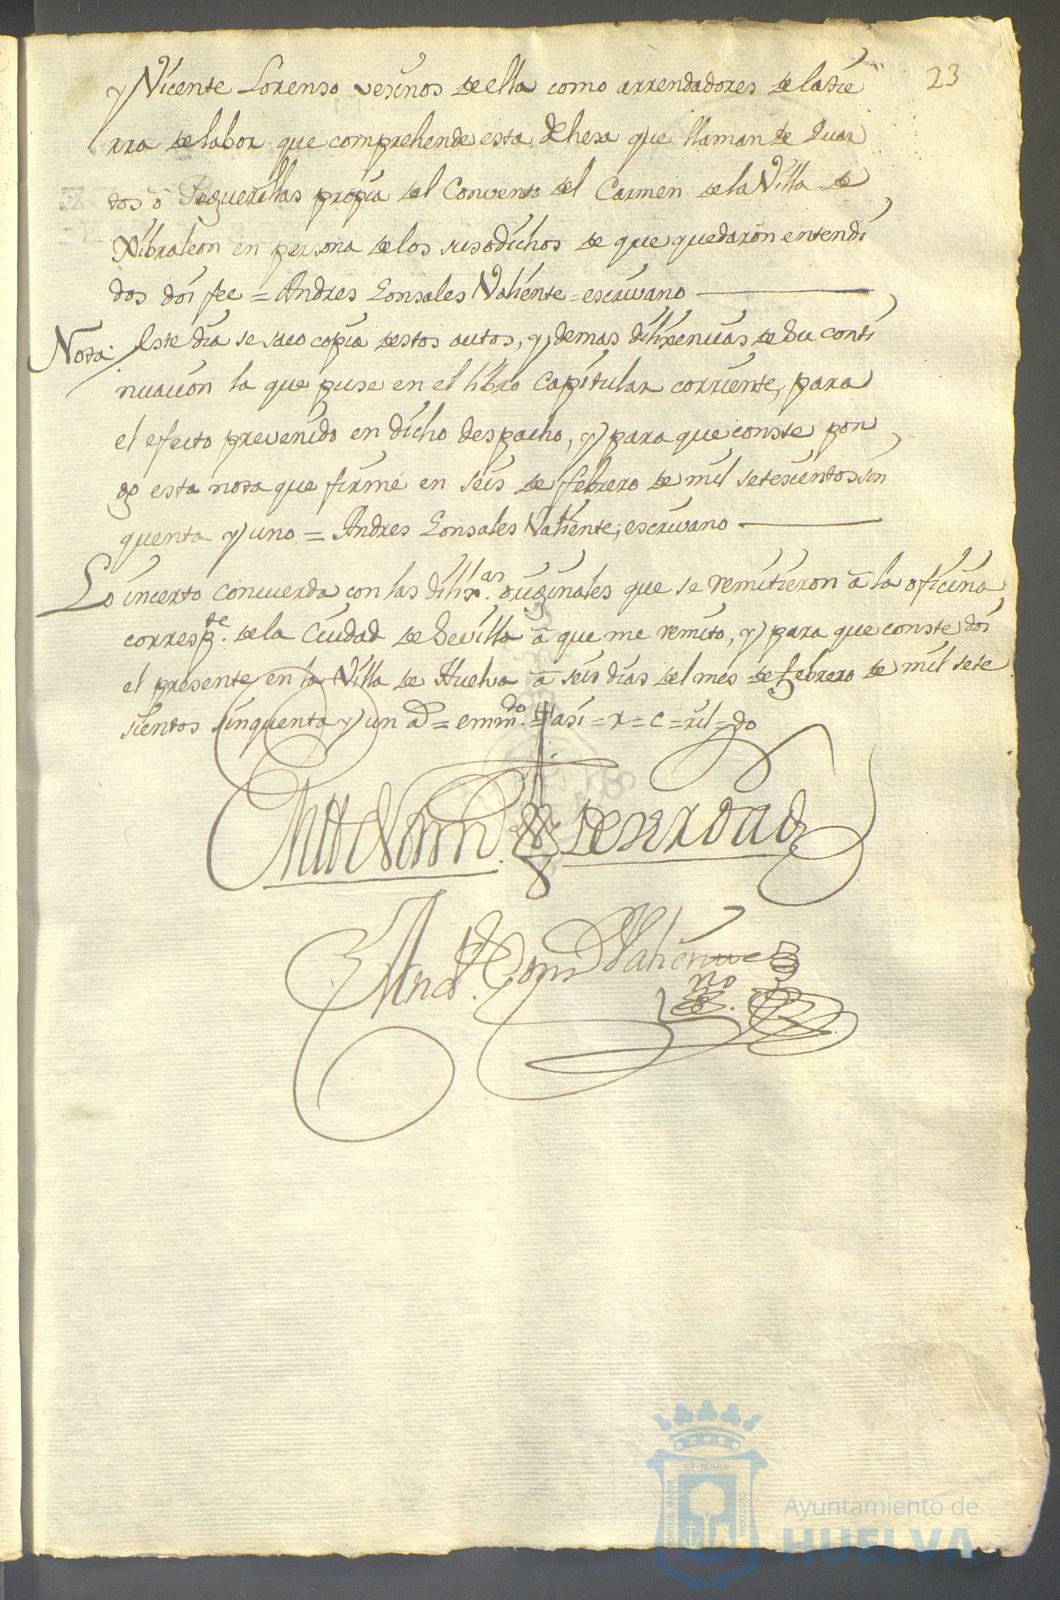 23
y Vicente Lorenso vesinos de ella como arrendadores de la tie
rra de labor que comprehende esta dehesa que llaman de Duar
dos ò Peguerillas propia del Convento del Carmen de la Villa de
Xibraleon en persona de los susodichos de que quedaron entendi
dos doi fee = Andres Gonsales Valiente = escrivano
Nota Este dia se saco copia destos autos, y demas dilixencias de su conti
nuacion la que puse en el libro capitular corriente, para
el efecto prevenido en dicho despacho, y para que conste pon
go esta nota que firmé en seis de febrero de mil setesientos sin
quenta y uno = Andres Gonsales Valiente, escrivano
Lo incerto concuerda con las dilix.as originales que se remitieron â la oficina
corresp.te de la Ciudad de Sevilla â que me remito, y para que conste doi
el presente en la Villa de Huelva â seis dias del mes de febrero de mil sete
sientos sinquenta y un a.s = emm.do = asi = r = c = xil = do
And.s Gon.s Valiente
Ayuntamiento de
HUELVA